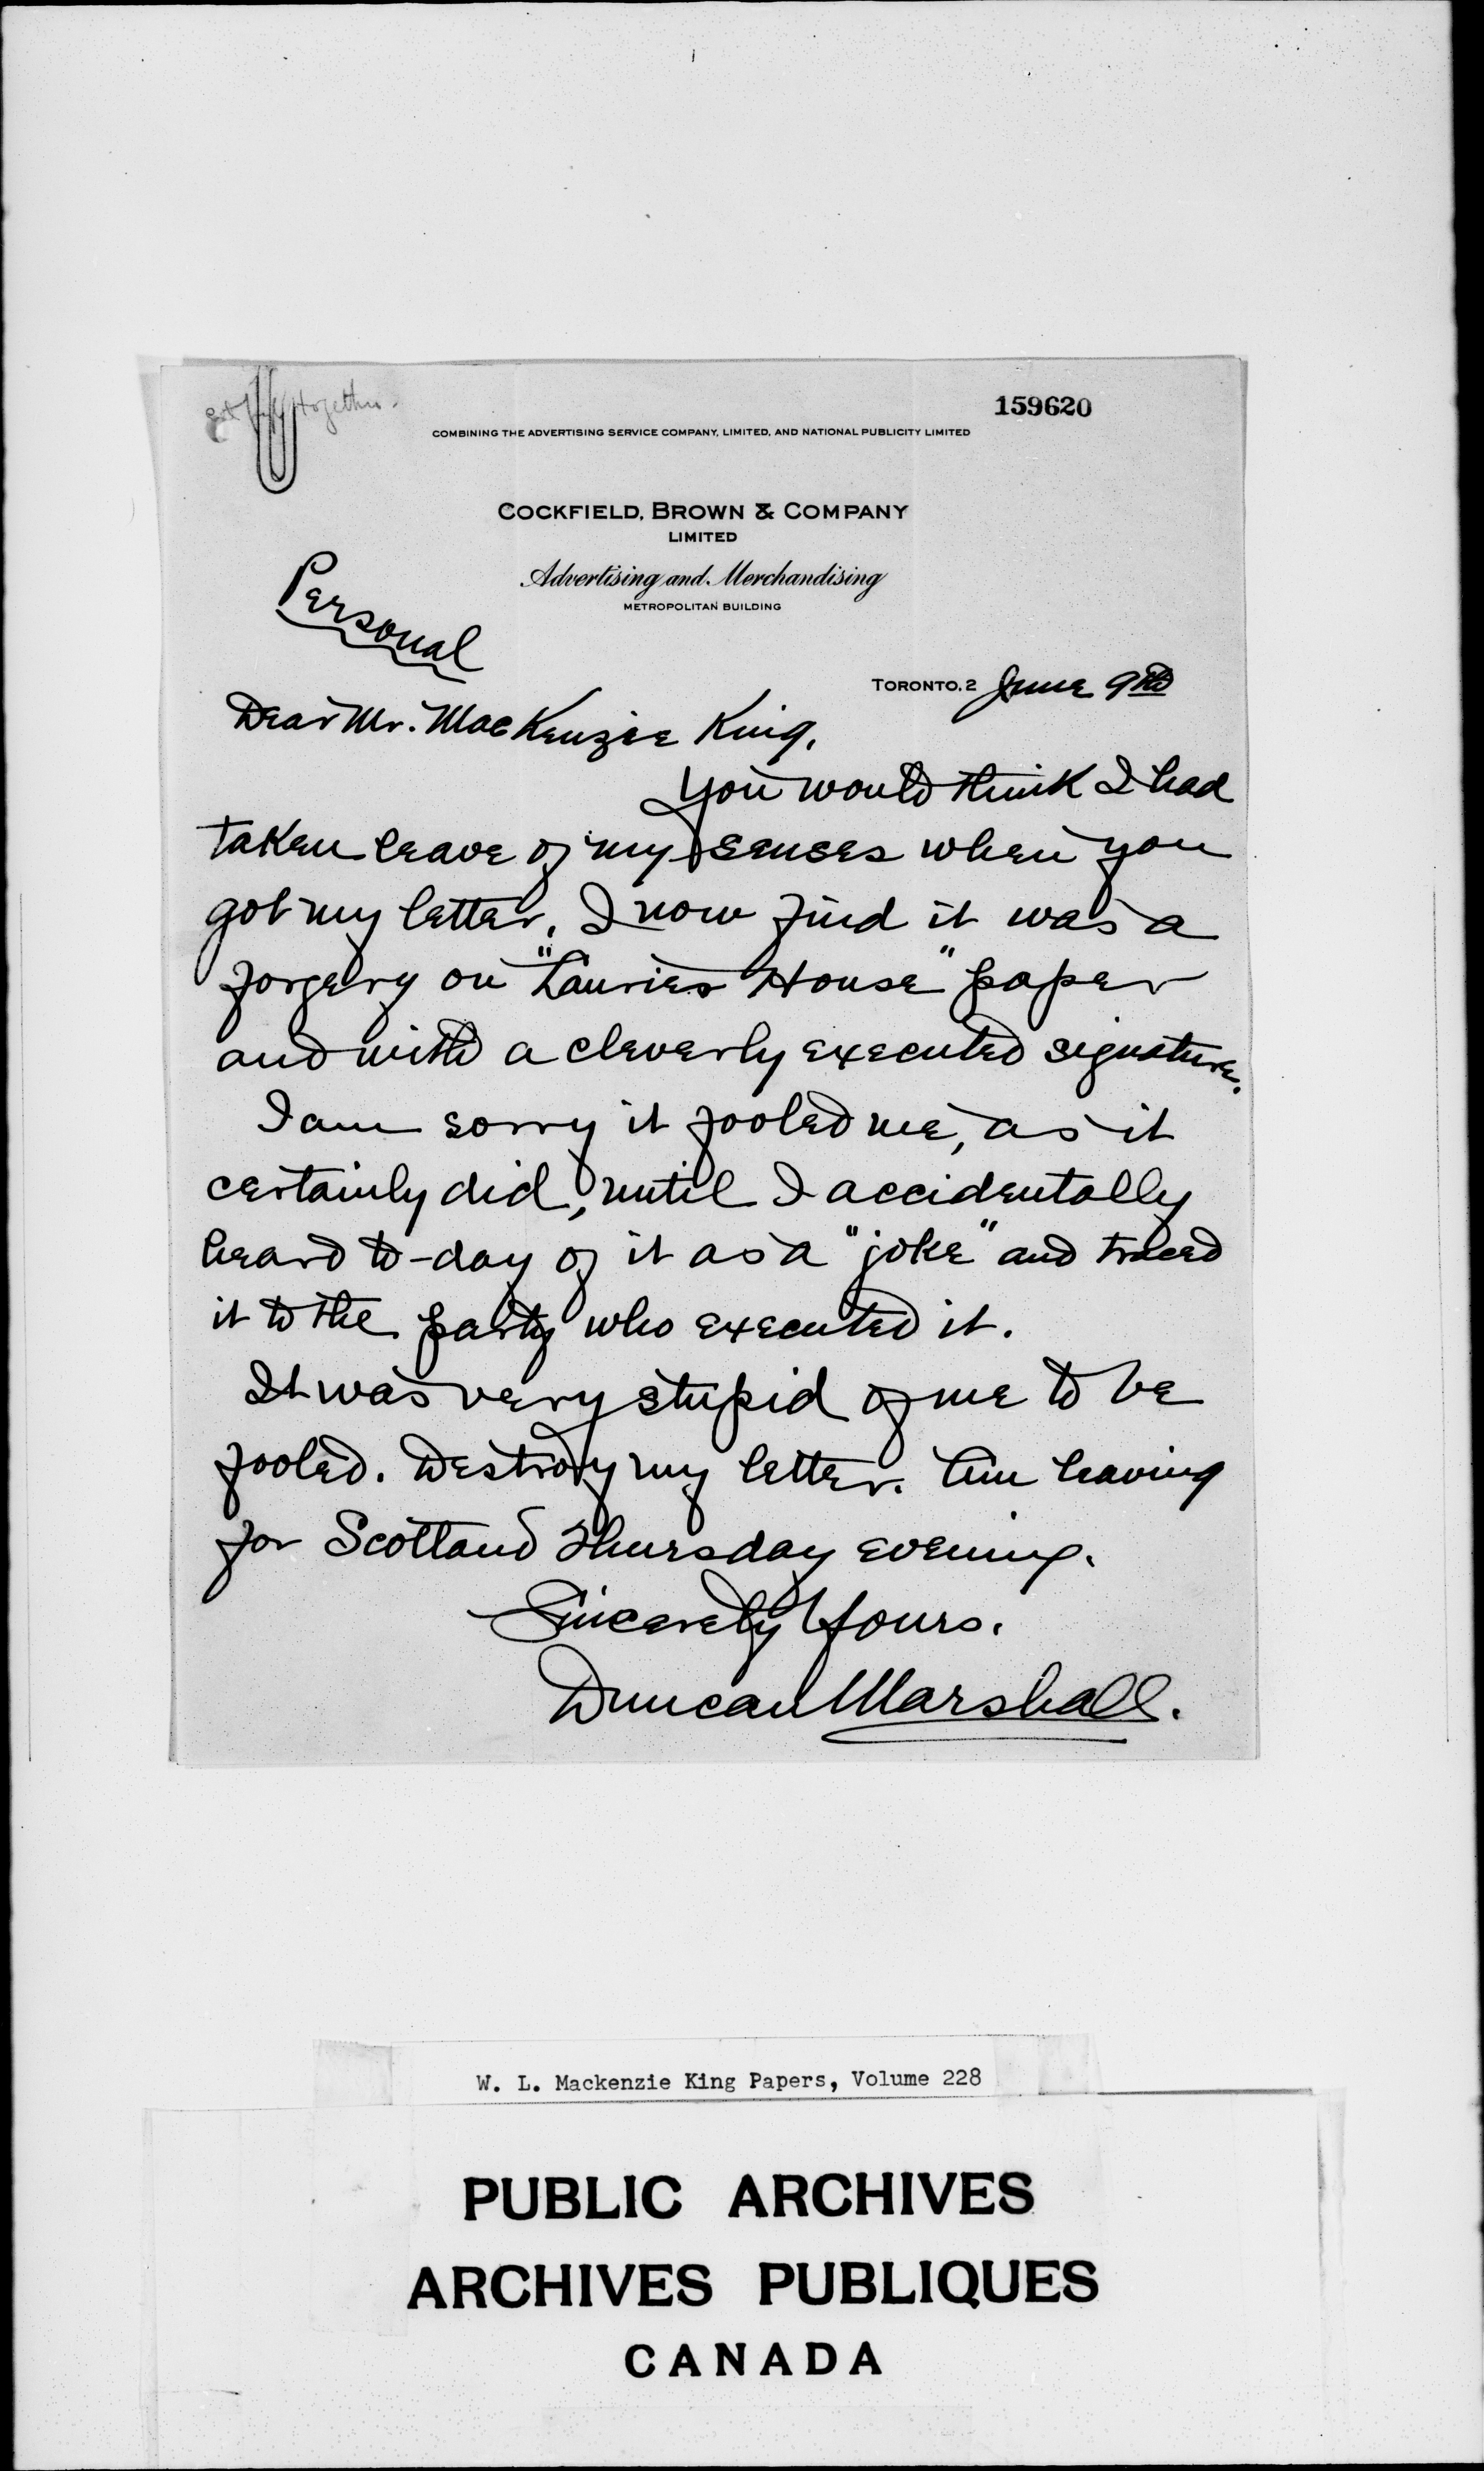 together.
159620
COMBINING THE ADVERTISING SERVICE COMPANY, LIMITED, AND NATIONAL PUBLICITY LIMITED
COCKFIELD, BROWN & COMPANY
LIMITED
Advertising and Merchandising
METROPOLITAN BUILDING
Personal
TORONTO, 2 June 9th
Dear Mr. MacKenzie King,
You would think I had
taken leave of my senses when you
got my letter. I now find it was a
forgery on "Laurier House" paper
and with a cleverly executed signature.
I am sorry it fooled me, as it
certainly did, until I accidentally
heard to-day of it as a "joke" and traced
it to the party who executed it.
It was very stupid of me to be
fooled. Destroy my letter. Am leaving
for Scotland Thursday evening.
Sincerely Yours.
Duncan Marshall.
W. L. Mackenzie King Papers, Volume 228
PUBLIC ARCHIVES
ARCHIVES PUBLIQUES
CANADA